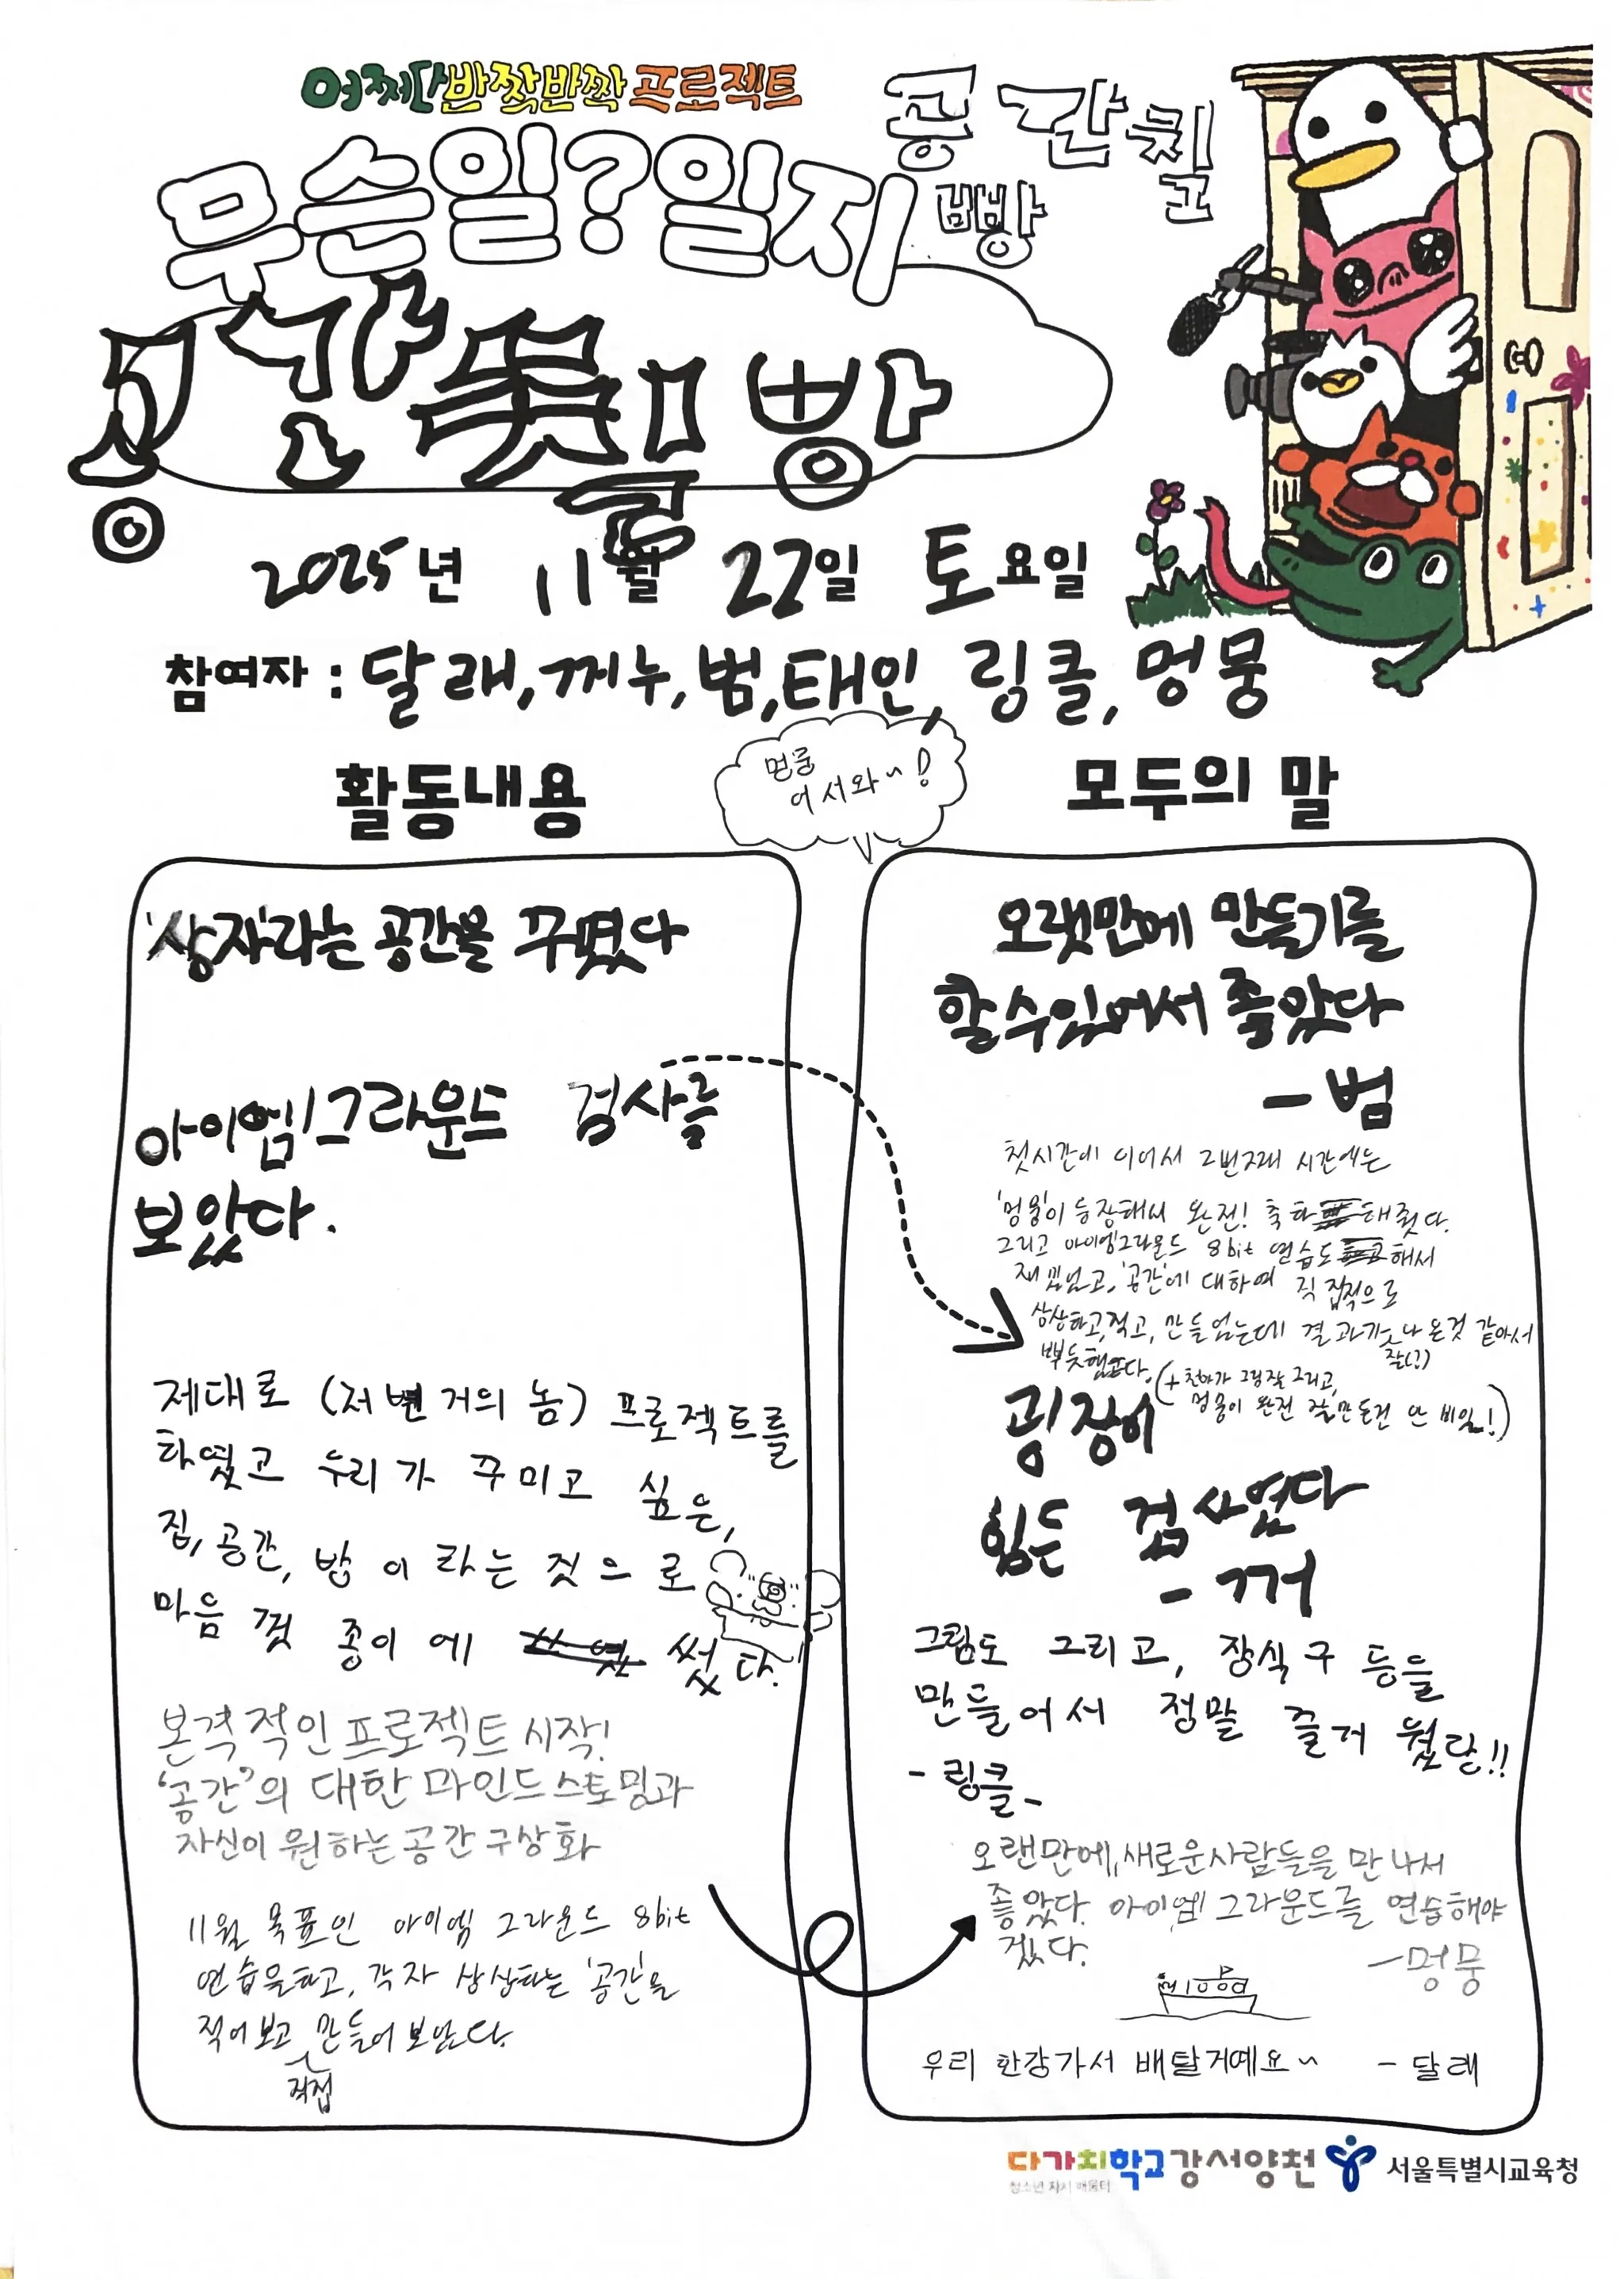 어쩌다반짝반짝프로젝트
무슨일?일지
공간칟고
빵
방
2025년 11월 22일 토요일
참여자 : 달래, 꺼누, 범, 태인, 링클, 멍뭉
멍뭉
어서와~!
활동내용
'상자'라는 공간을 꾸몄다
아이엠그라운드 검사를
보았다.
제대로 (저번 거의 놈) 프로젝트를
하였고 누리가 꾸미고 싶은,
집, 공간, 방 이라는 것으로
마음 껏 종이에 썼다.
본격적인 프로젝트 시작!
'공간'의 대한 마인드스토밍과
자신이 원하는 공간 구상화
11월 목표인 아이엠 그라운드 8bit
연습을하고, 각자 상상하는 '공간'을
적어보고 만들어 보았다.
직접
모두의 말
오랫만에 만들기를
할수있어서 좋았다
- 범
첫시간에 이어서 2번째 시간에는
'멍뭉'이 등장해서 완전! 축하해줬다.
그리고 아이엠그라운드 8bit 연습도 해서
재밌었고, '공간'에 대하여 직접적으로
상상하고, 적고, 만들었는데 결과가 나온것 같아서
잘(?)
뿌듯했다.
(+ 천하가 그림잘 그리고,
멍뭉이 완전 잘만든건 안 비밀!)
굉장히
힘든 검사였다
- 꺼
그림도 그리고, 장식구 등을
만들어서 정말 즐거웠닫!!
- 링클-
오랜만에, 새로운사람들을 만나서
좋았다. 아이엠 그라운드를 연습해야
겠다.
- 멍뭉
우리 한강가서 배탈거예요~ - 달래
다가치학교강서양천
청소년 자치 배움터
서울특별시교육청